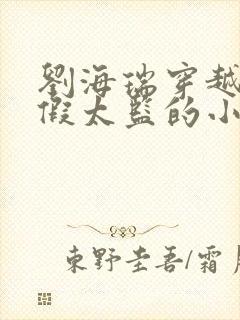 劉海瑞穿越
假太監的小
東野圭吾/霜月